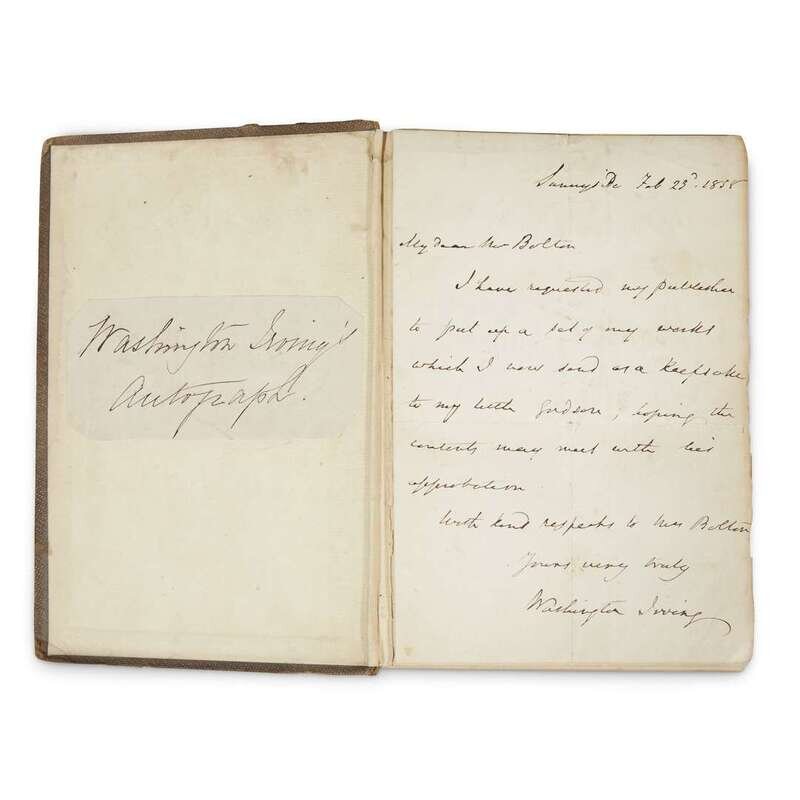 Washington Irving's
Autograph.
Sunnyside Feb 23d. 1858
My dear Mr Bolton
I have requested my publisher
to put up a set of my works
which I now send as a Keepsake
to my little Godson, hoping the
contents may meet with his
approbation
With kind respects to Mrs Bolton
Yours very truly
Washington Irving